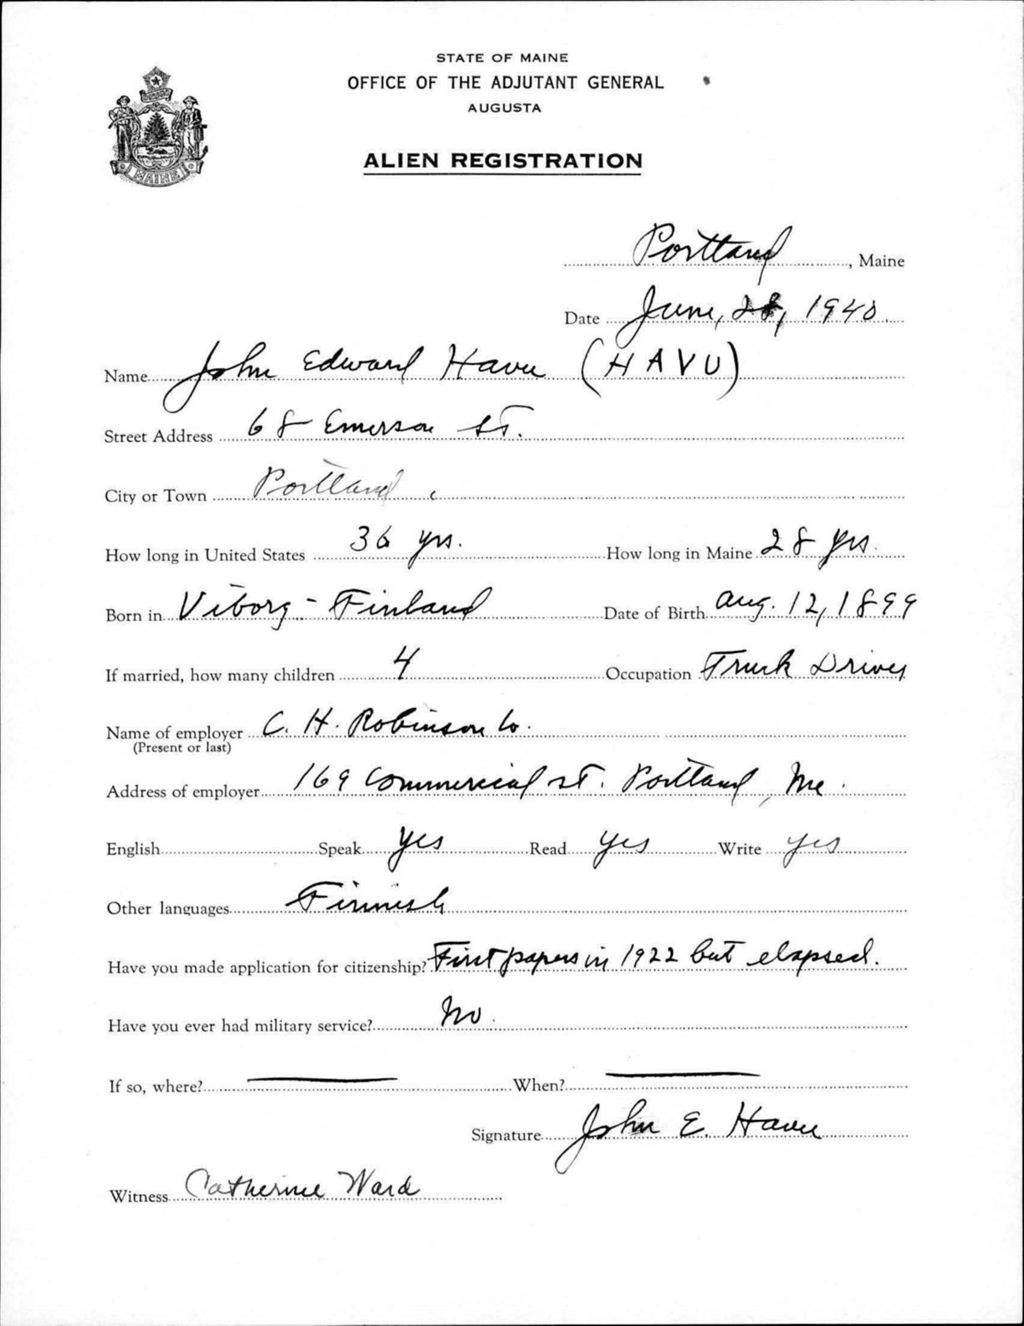 STATE OF MAINE
OFFICE OF THE ADJUTANT GENERAL
AUGUSTA
ALIEN REGISTRATION
MAINE
Portland, Maine
Date June, 28, 1940
Name John Edward Havu (HAVU)
Street Address 68 Emerson St.
City or Town Portland
How long in United States 36 yrs. How long in Maine 28 yrs.
Born in Viborg - Finland Date of Birth Aug. 12, 1899
If married, how many children 4 Occupation Truck Driver
Name of employer C. H. Robinson Co.
(Present or last)
Address of employer 169 Commercial St. Portland, Me.
English Speak yes Read yes Write yes
Other languages Finnish
Have you made application for citizenship? First papers in 1922 but elapsed.
Have you ever had military service? No.
If so, where? When?
Signature John E. Havu
Witness Catherine Ward